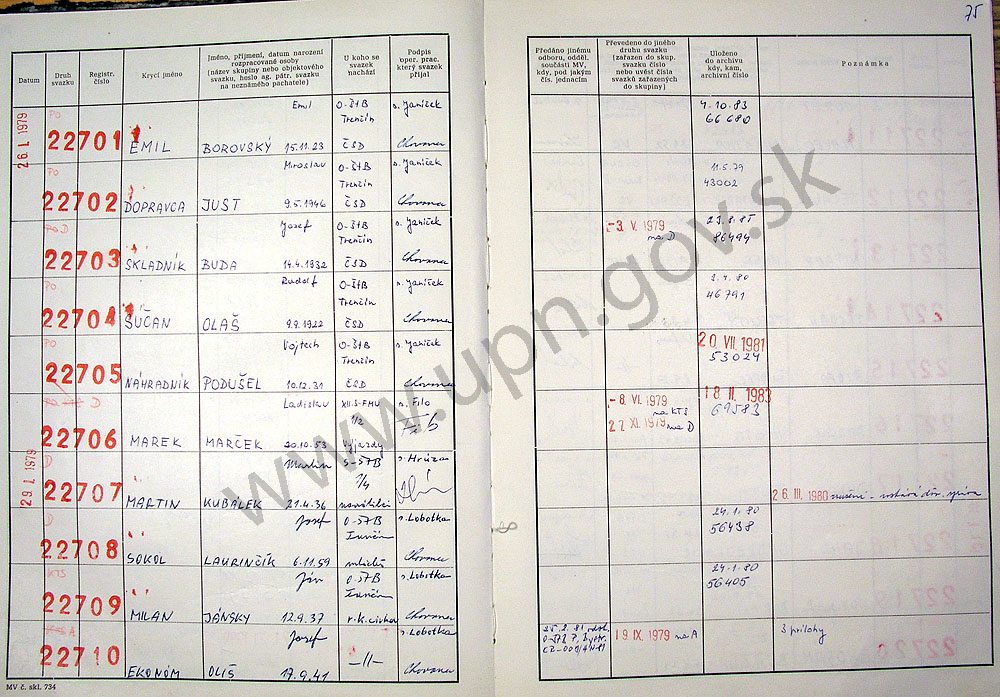 75
Datum
Druh svazku
Registr. číslo
Krycí jméno
Jméno, příjmení, datum narození
rozpracované osoby
(název skupiny nebo objektového
svazku, heslo ag. pátr. svazku
na neznámého pachatele)
U koho se
svazek
nachází
Podpis
oper. prac.
který svazek
přijal
Předáno jinému
odboru, odděl.
součásti MV,
kdy, pod jakým
čís. jednacím
Převedeno do jiného
druhu svazku
(zařazen do skup.
svazku číslo
nebo uvést čísla
svazků zařazených
do skupiny)
Uloženo
do archivu
kdy, kam,
archivní číslo
Poznámka
26. I. 1979
PO
22701 EMIL BOROVSKÝ Emil 15.11.23
O-ŠtB Trenčín ČSD
s. Janíček
4.10.83
66680
PO
22702 DOPRAVCA JUST Miroslav 9.5.1946
O-ŠtB Trenčín ČSD
s. Janíček
11.5.79
43002
PO D
22703 SKLADNÍK BUDA Jozef 14.4.1932
O-ŠtB Trenčín ČSD
s. Janíček
-3. V. 1979
na D
23.8.85
86494
PO
22704 SUČAN OLAŠ Rudolf 9.9.1922
O-ŠtB Trenčín ČSD
s. Janíček
2.4.80
46791
PO
22705 NÁHRADNÍK PODUŠEL Vojtech 10.12.31
O-ŠtB Trenčín ČSD
s. Janíček
20. VII. 1981
53024
D
22706 MAREK MARČEK Ladislav 20.10.53
XII.S-FMV 1/2 Výjazdy
s. Filo
-8. VI. 1979
na KTS
27. XI. 1979 na D
18. II. 1983
69583
29. I. 1979
D
22707 MARTIN KUBALEK Martin 21.4.36
S-ŠTB 7/4
s. Hrúza
26. III. 1980
D
22708 SOKOL LAURINČÍK Jozef 6.11.59
O-ŠTB Trenčín mládež
s. Lobotka
24.1.80
56438
KTS
22709 MILAN JÁNSKY Ján 12.9.37
O-ŠTB Trenčín r.k. cirkev
s. Lobotka
24.1.80
56405
A
22710 EKONÓM OLIŠ Jozef 17.9.41
-||-
s. Lobotka
19. IX. 1979 na A
3 prílohy
MV č. skl. 734
www.upn.gov.sk